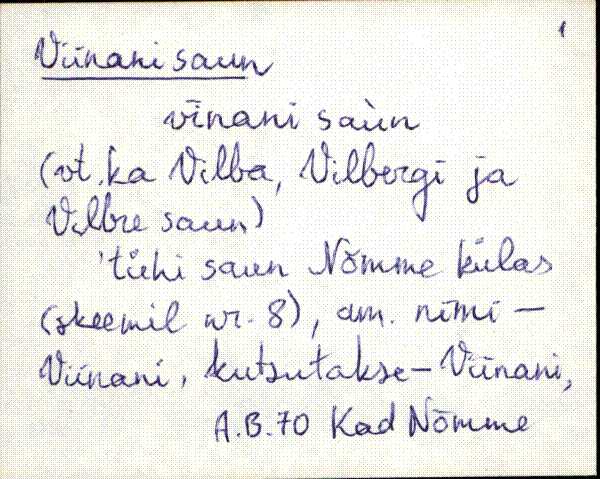 1
Viinani saun
vīnani saùn
(vt. ka Vilba, Vilbergi ja
Vilbre saun)
'tühi saun Nõmme külas
(skeemil nr. 8), am. nimi –
Viinani, kutsutakse – Viinani,
A.B.70 Kad Nõmme